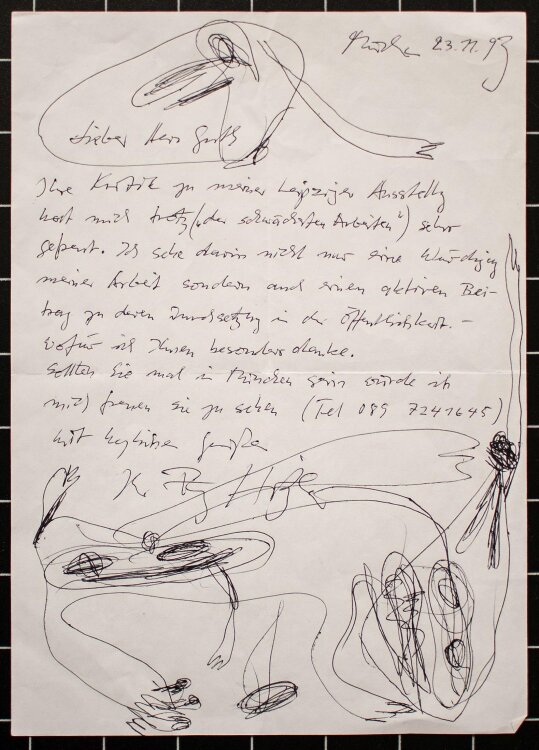 München 23.11.93
Lieber Herr Guth
Ihre Kritik zu meiner Leipziger Ausstellg
hat mich trotz („der schwächsten Arbeiten") sehr
gefreut. Ich sehe darin nicht nur eine Würdigung
meiner Arbeit sondern auch einen aktiven Bei-
trag zu deren Durchsetzung in der Öffentlichkeit. –
wofür ich Ihnen besonders danke.
Sollten Sie mal in München sein würde ich
mich freuen sie zu sehen (Tel 089 7241645)
mit herzlichen Grüßen